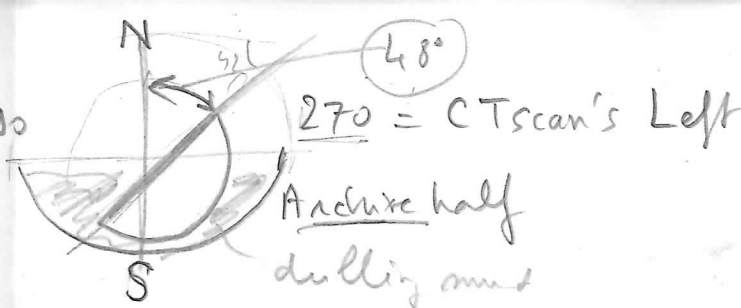 N
48°
270 = CTscan's Left
Archive half
drilling mud
S